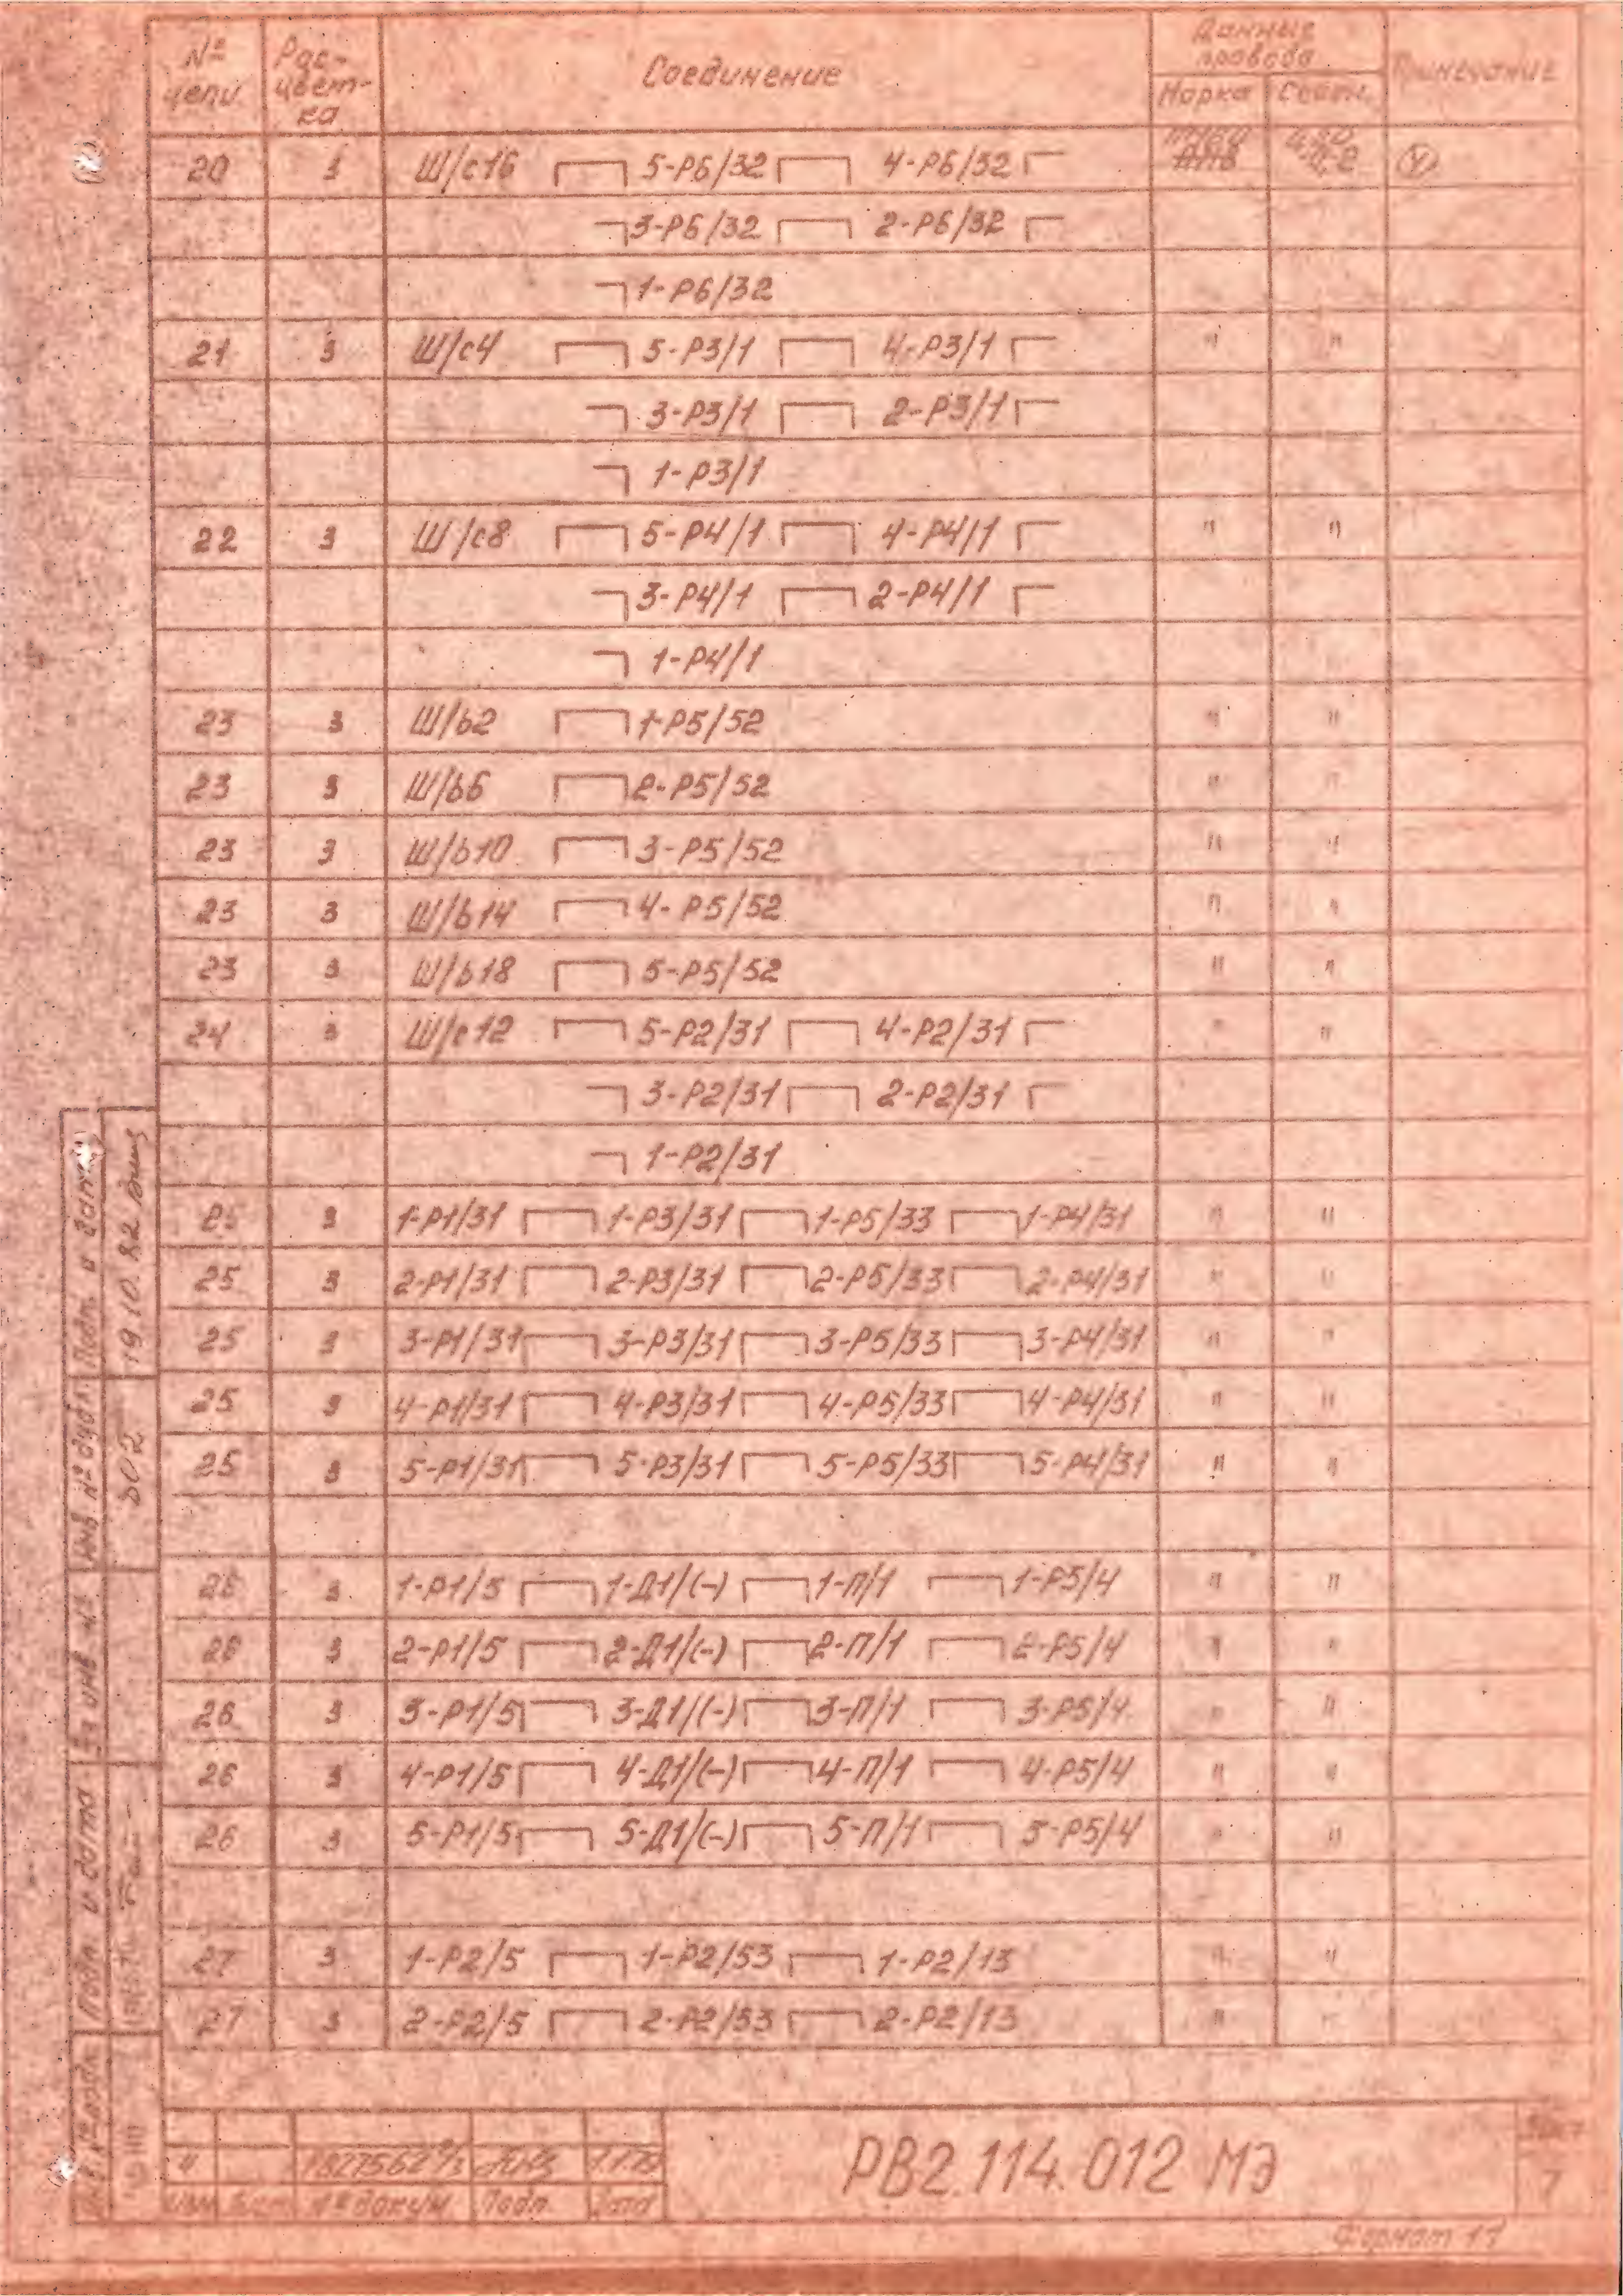 № цепи Рас-цвет-ка Соединение Данные провода Примечание
Марка Сечен.
20 3 Ш/с16 5-Р6/32 4-Р6/32
3-Р6/32 2-Р6/32
1-Р6/32
21 3 Ш/с4 5-Р3/1 4-Р3/1 " "
3-Р3/1 2-Р3/1
1-Р3/1
22 3 Ш/с8 5-Р4/1 4-Р4/1 " "
3-Р4/1 2-Р4/1
1-Р4/1
23 3 Ш/b2 1-Р5/52 " "
23 3 Ш/b6 2-Р5/52 " "
23 3 Ш/b10 3-Р5/52 " "
23 3 Ш/b14 4-Р5/52 " "
23 3 Ш/b18 5-Р5/52 " "
24 3 Ш/с12 5-Р2/31 4-Р2/31 " "
3-Р2/31 2-Р2/31
1-Р2/31
25 3 1-Р1/31 1-Р3/31 1-Р5/33 1-Р4/31 " "
25 3 2-Р1/31 2-Р3/31 2-Р5/33 2-Р4/31 " "
25 3 3-Р1/31 3-Р3/31 3-Р5/33 3-Р4/31 " "
25 3 4-Р1/31 4-Р3/31 4-Р5/33 4-Р4/31 " "
25 3 5-Р1/31 5-Р3/31 5-Р5/33 5-Р4/31 " "
26 3 1-Р1/5 1-Д1/(-) 1-П/1 1-Р5/4 " "
26 3 2-Р1/5 2-Д1/(-) 2-П/1 2-Р5/4 " "
26 3 3-Р1/5 3-Д1/(-) 3-П/1 3-Р5/4 " "
26 3 4-Р1/5 4-Д1/(-) 4-П/1 4-Р5/4 " "
26 3 5-Р1/5 5-Д1/(-) 5-П/1 5-Р5/4 " "
27 3 1-Р2/5 1-Р2/53 1-Р2/13 " "
27 3 2-Р2/5 2-Р2/53 2-Р2/13 " "
Подп. и дата
19 10. 82
Инв № дубл.
Подп и дата
Изм Лист № докум. Подп. Дата
РВ2.114.012 МЭ
Лист
7
Формат 11